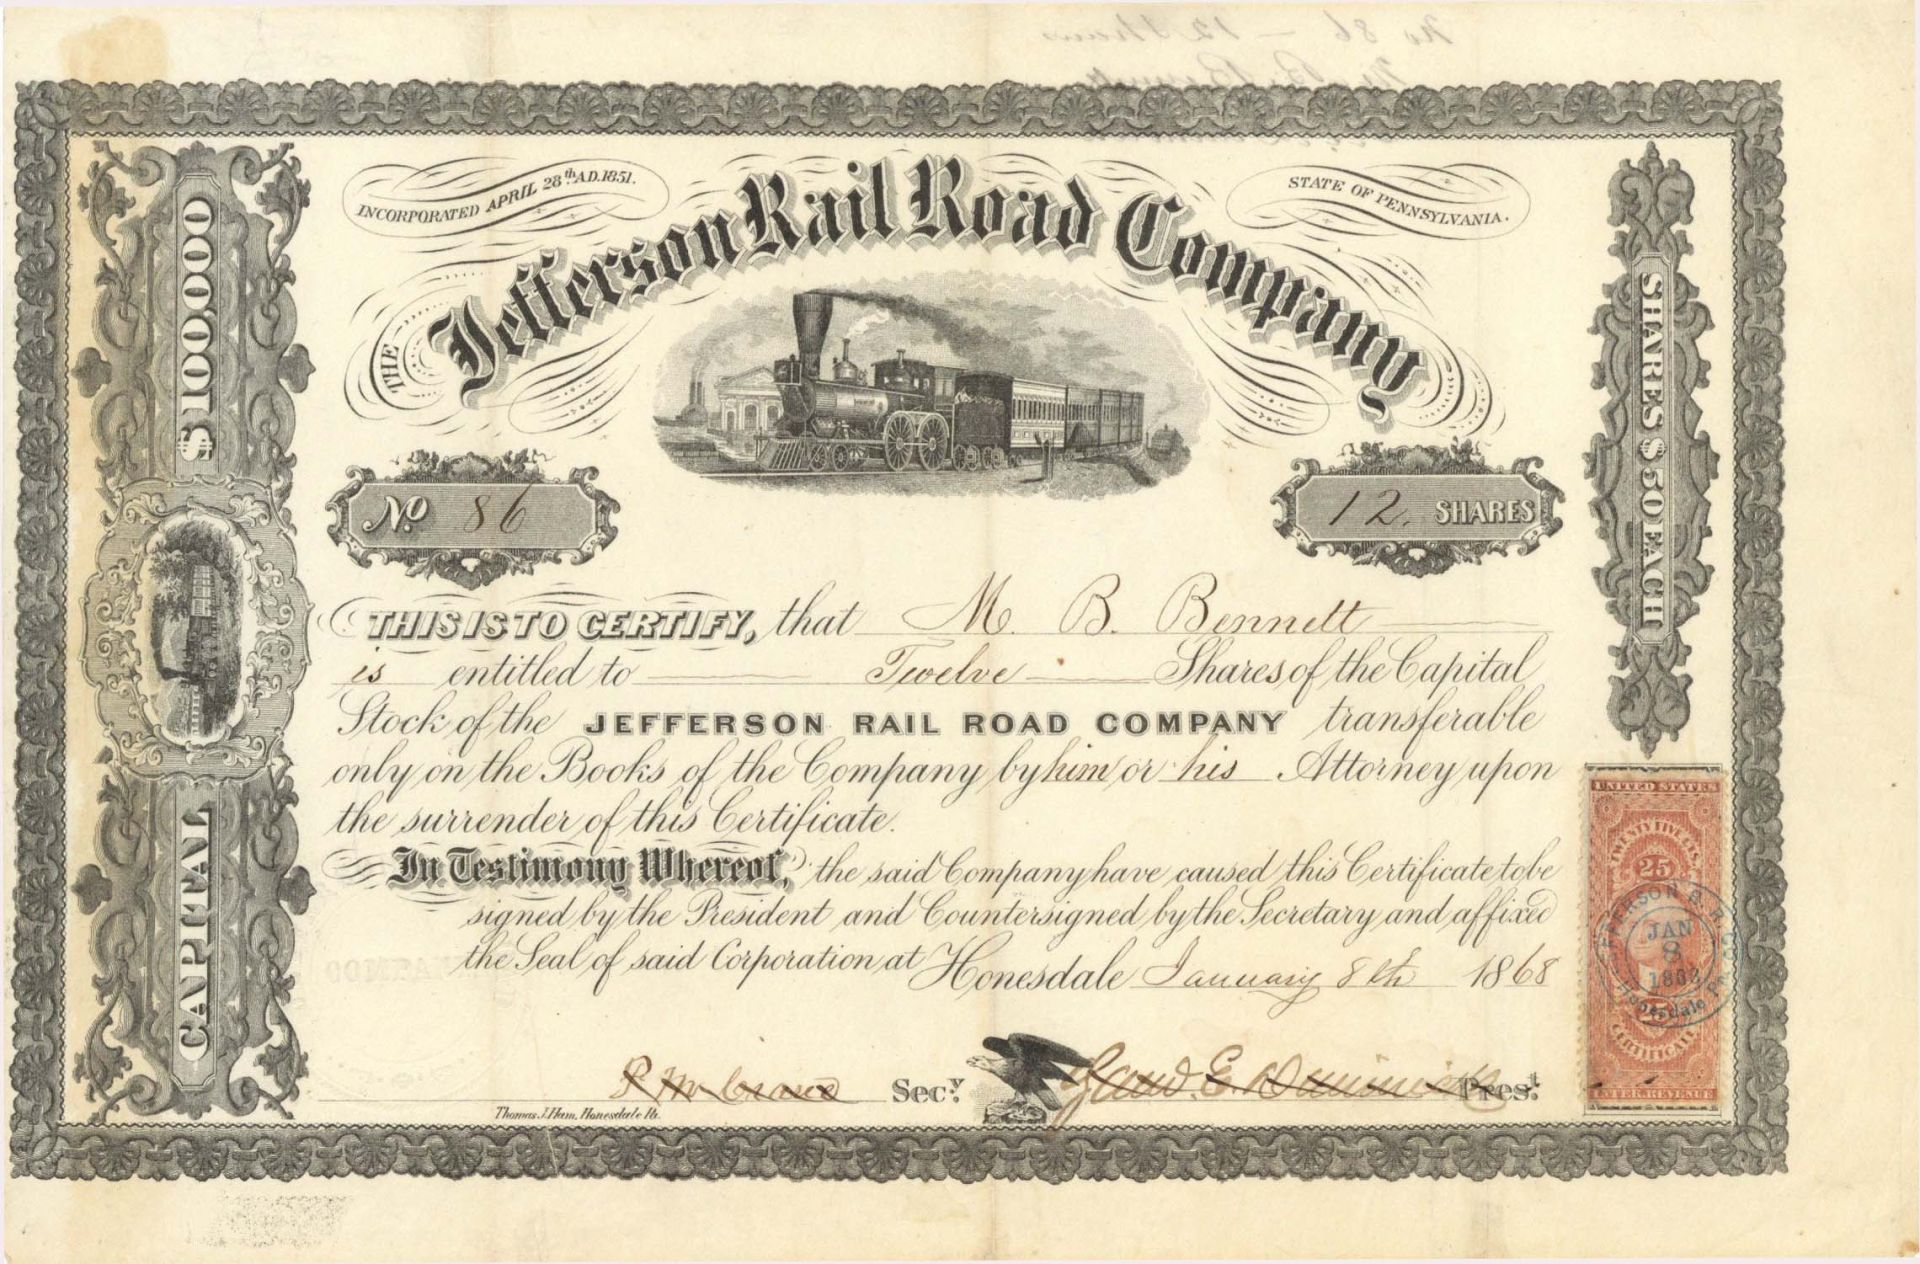 No 86 — 12 Shares
M. B. Bennett
INCORPORATED APRIL 28th A.D. 1851.
STATE OF PENNSYLVANIA.
THE Jefferson Rail Road Company
$100,000
CAPITAL
SHARES $50 EACH
No 86
12. SHARES
THIS IS TO CERTIFY, that M. B. Bennett
is entitled to Twelve Shares of the Capital
Stock of the JEFFERSON RAIL ROAD COMPANY transferable
only on the Books of the Company by him or his Attorney upon
the surrender of this Certificate.
In Testimony Whereof, the said Company have caused this Certificate to be
signed by the President and Countersigned by the Secretary and affixed
the Seal of said Corporation at Honesdale January 8th 1868
Secy.
Prest.
Thomas J. Ham, Honesdale Pa.
COMPAN
UNITED STATES
TWENTY FIVE CTS.
25
JEFFERSON R. R. CO.
JAN
8
1868
Honesdale Pa.
25
CERTIFICATE
INTER. REVENUE